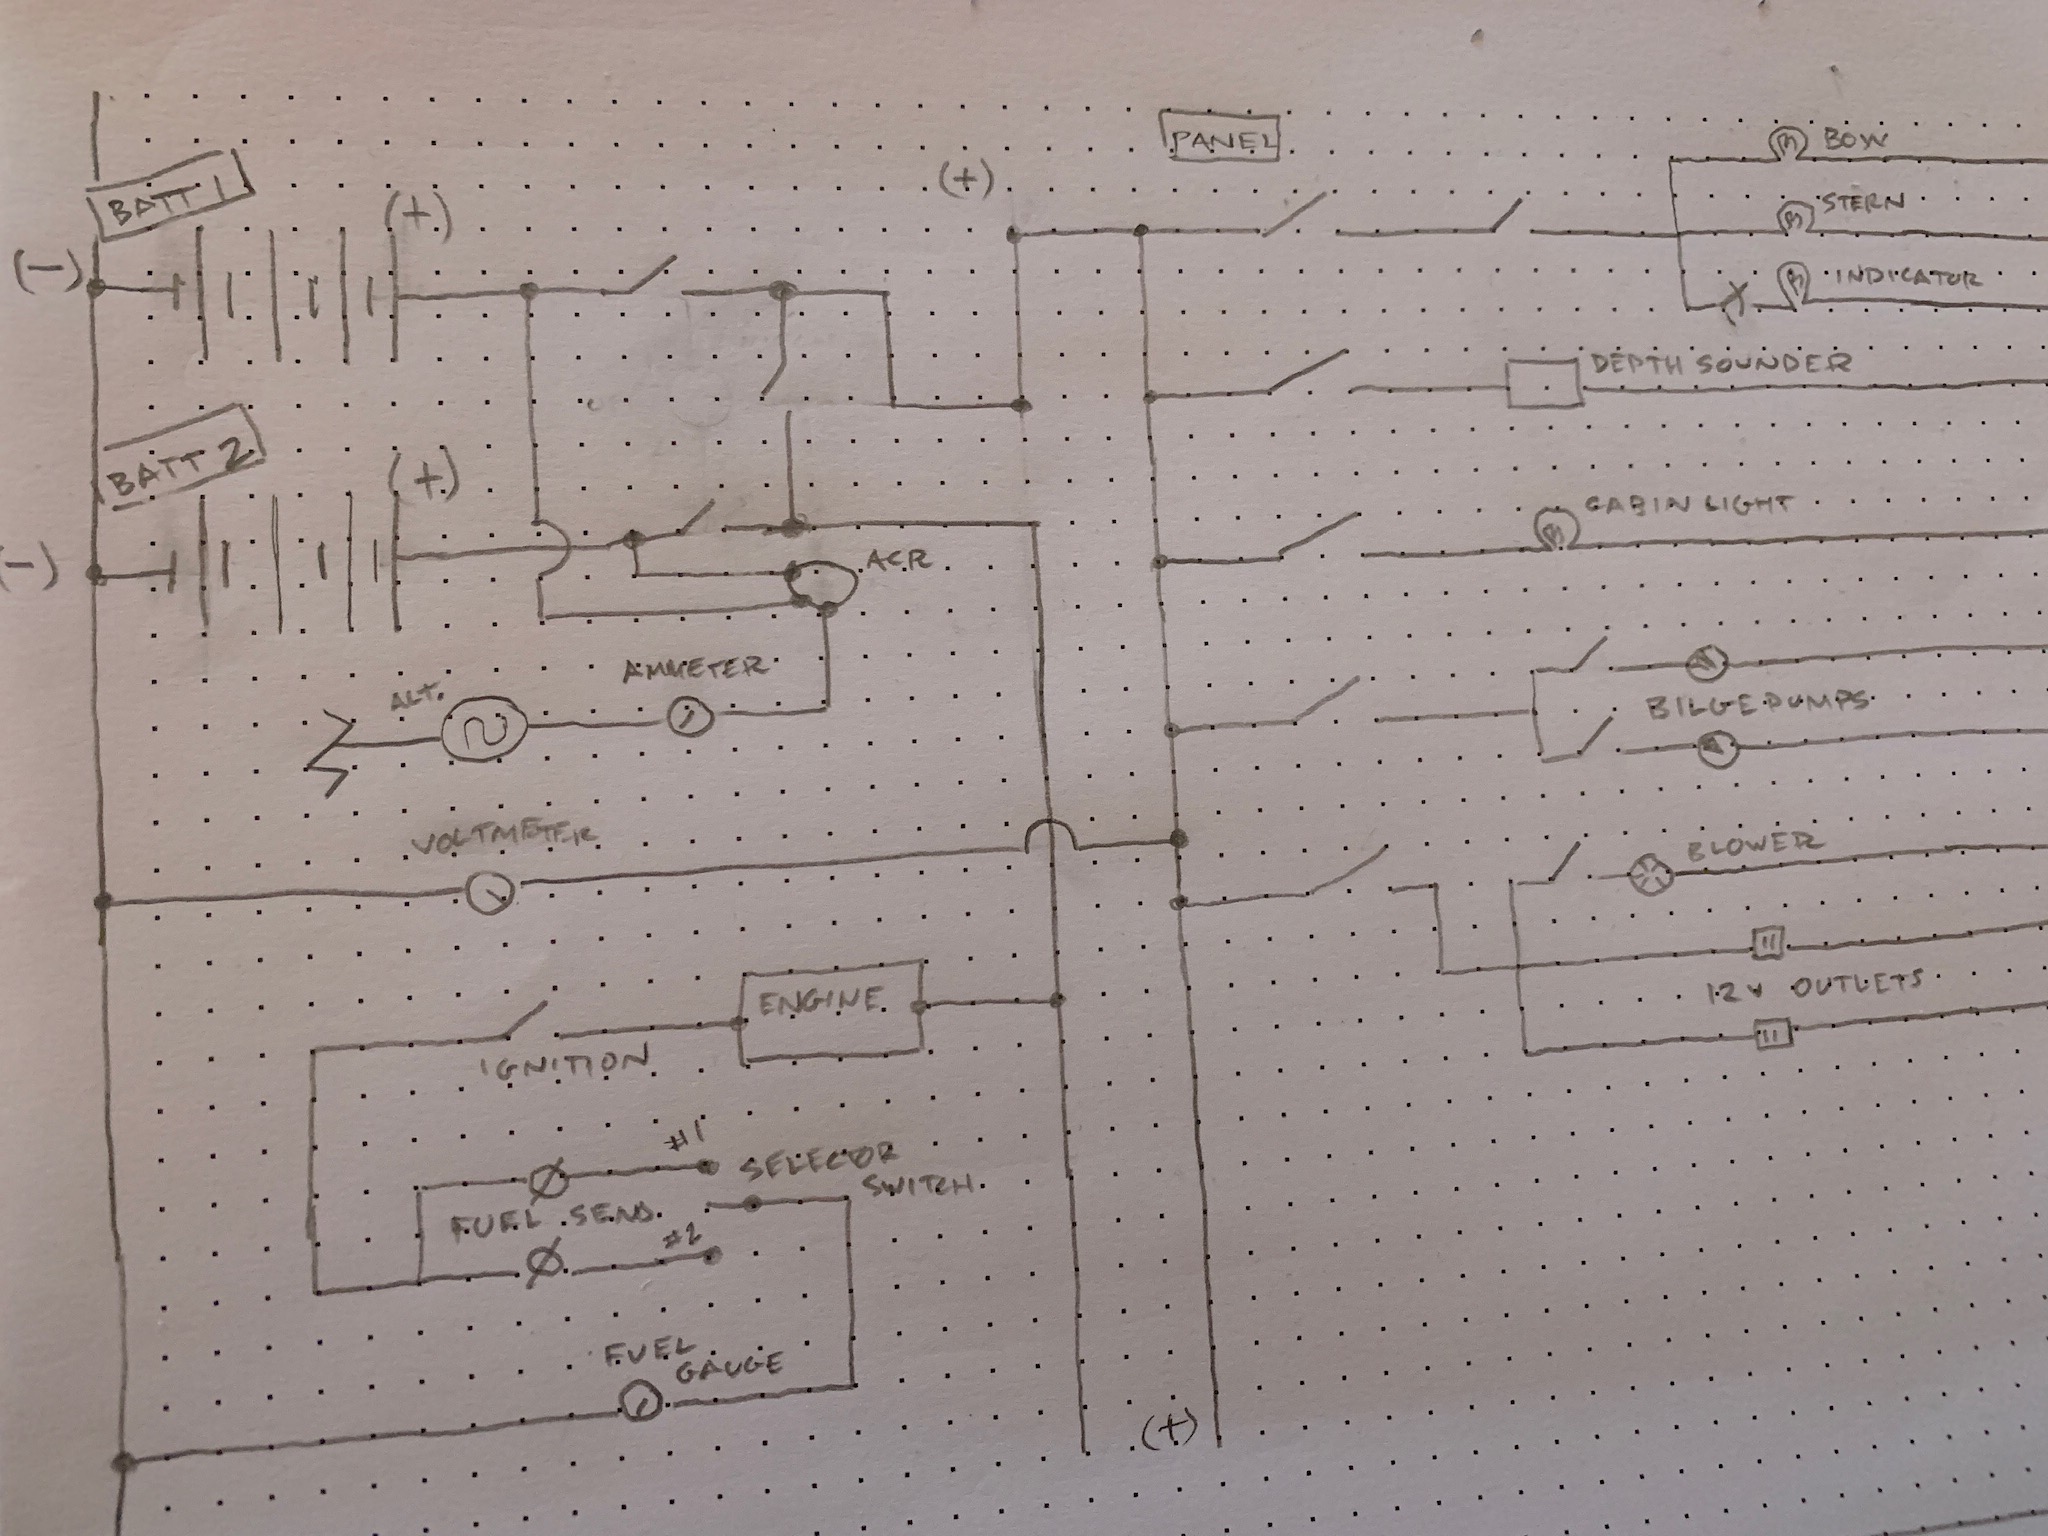 PANEL
BOW
BATT 1
(+)
(+)
STERN
(-)
INDICATOR
DEPTH SOUNDER
BATT 2
(+)
CABIN LIGHT
(-)
ACR
AMMETER
ALT.
BILGE PUMPS
VOLTMETER
BLOWER
ENGINE
12V OUTLETS
IGNITION
#1
SELECOR
SWITCH
FUEL SEND.
#2
FUEL
GAUGE
(+)